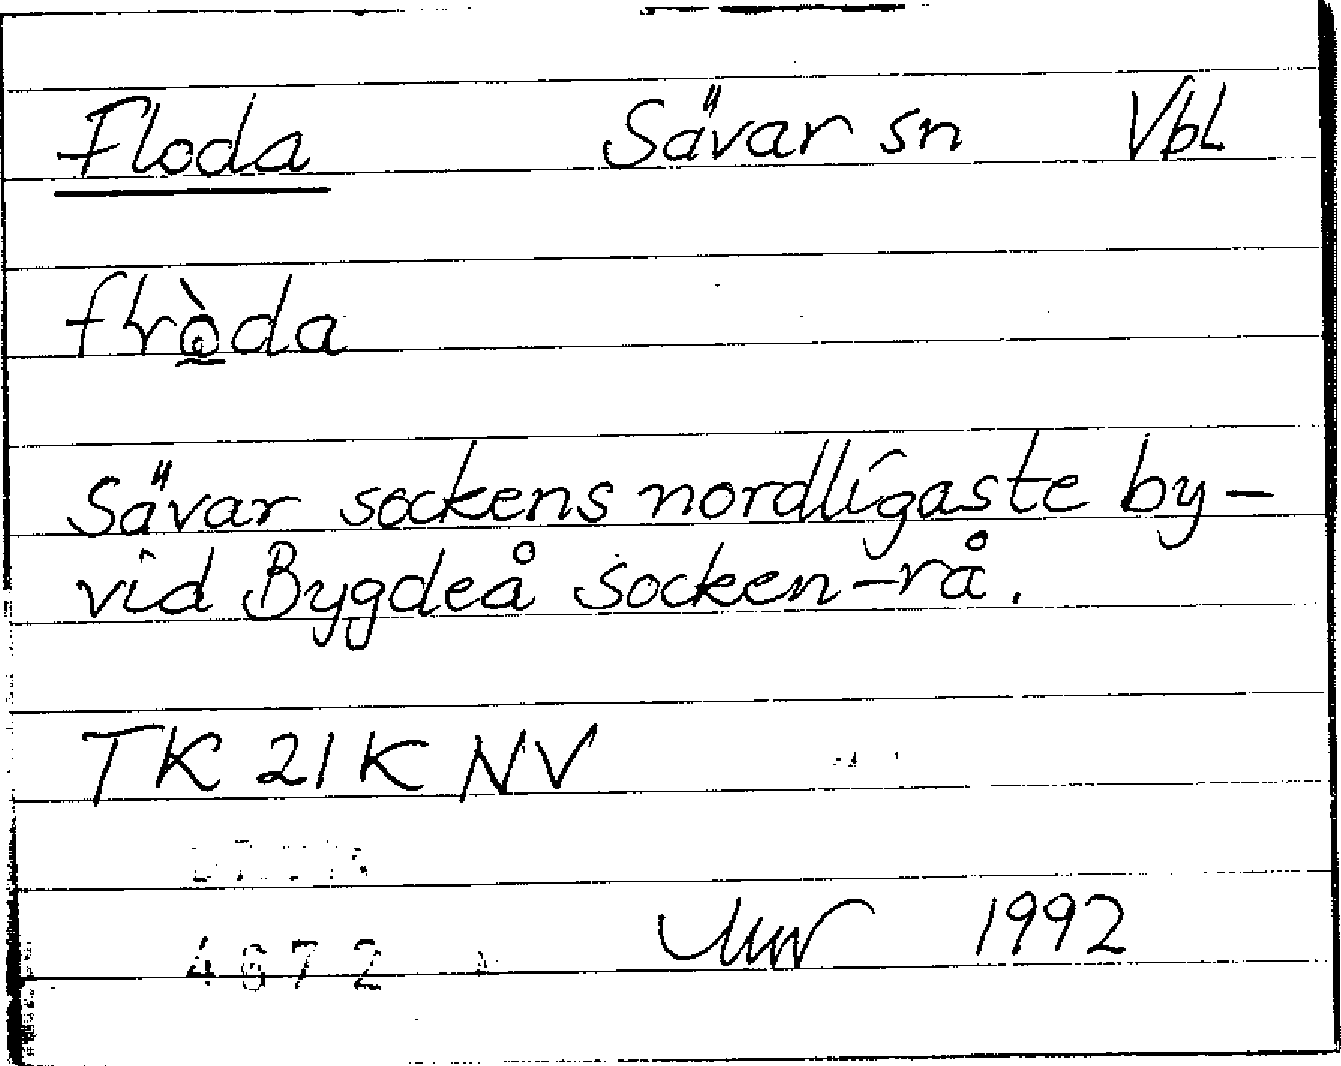 Floda Sävar sn Vbl
Sävar sockens nordligaste by –
vid Bygdeå socken-rå.
TK 21K NV
1992
4672